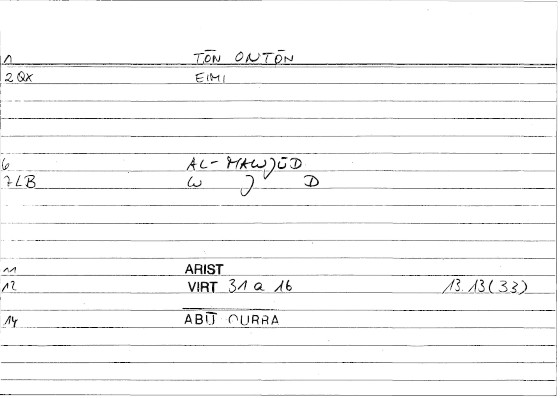 1 TŌN ONTŌN
2 QX EIMI
6 AL-MAWJŪD
7 LB W J D
11 ARIST
12 VIRT 31 a 16 13.13(33)
14 ABŪ QURRA